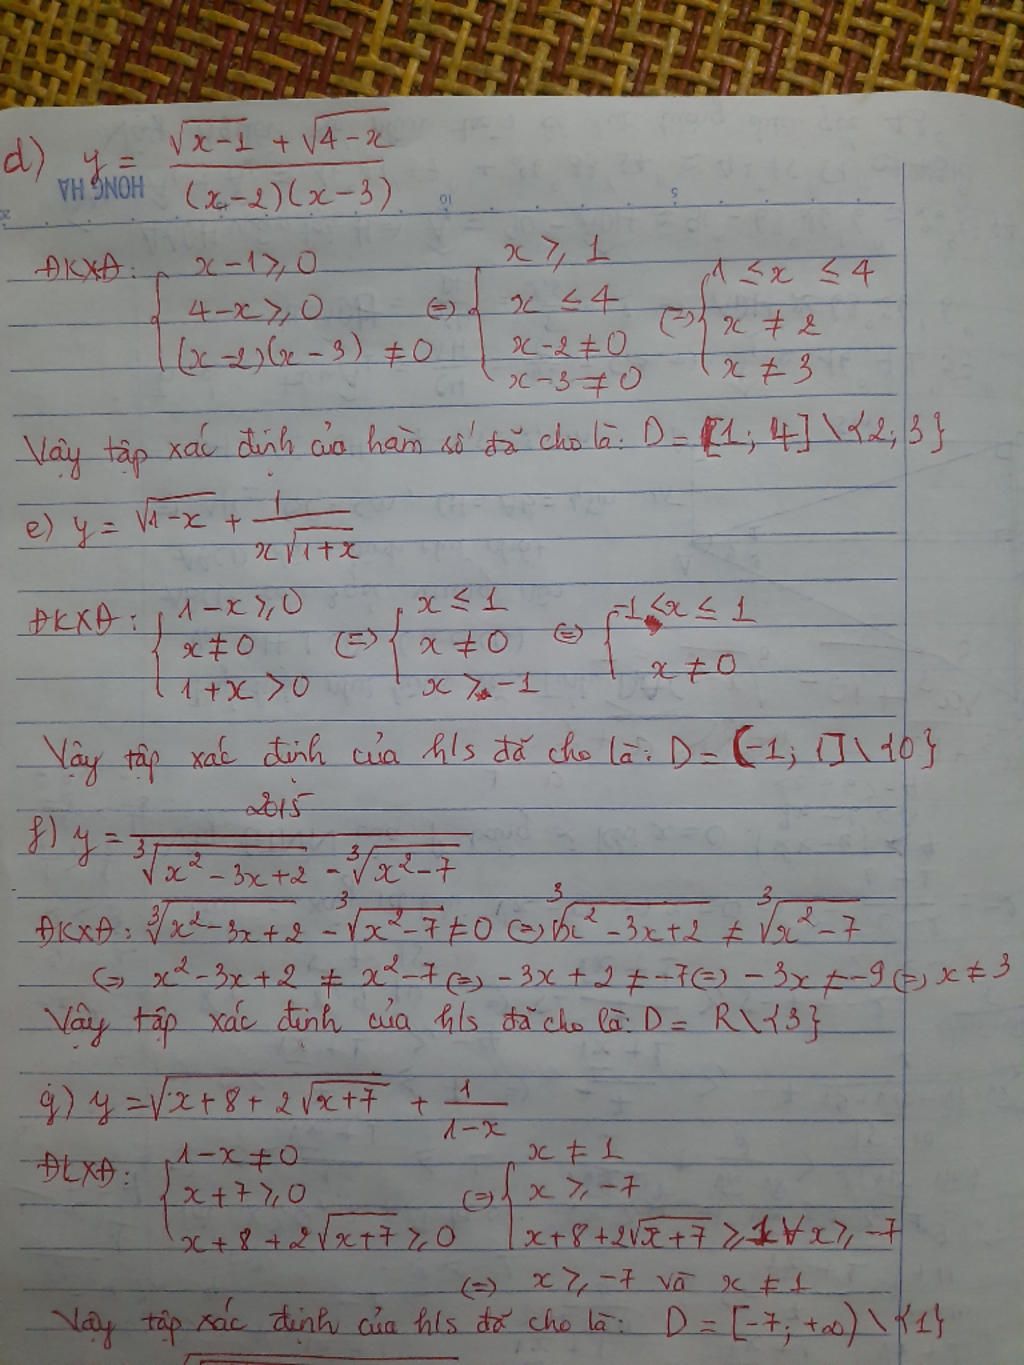 d) y = (√(x-1) + √(4-x)) / ((x-2)(x-3))
HONG HA
10 5
ĐKXĐ: { x-1 ≥ 0 ; 4-x ≥ 0 ; (x-2)(x-3) ≠ 0 ⇔ { x ≥ 1 ; x ≤ 4 ; x-2 ≠ 0 ; x-3 ≠ 0 ⇔ { 1 ≤ x ≤ 4 ; x ≠ 2 ; x ≠ 3
Vậy tập xác định của hàm số đã cho là: D = [1; 4] \ {2; 3}
e) y = √(1-x) + 1/(x√(1+x))
ĐKXĐ: { 1-x ≥ 0 ; x ≠ 0 ; 1+x > 0 ⇔ { x ≤ 1 ; x ≠ 0 ; x > -1 ⇔ { -1 < x ≤ 1 ; x ≠ 0
Vậy tập xác định của h/s đã cho là: D = (-1; 1] \ {0}
f) y = 2015 / (∛(x² - 3x + 2) - ∛(x² - 7))
ĐKXĐ: ∛(x² - 3x + 2) - ∛(x² - 7) ≠ 0 ⇔ ∛(x² - 3x + 2) ≠ ∛(x² - 7)
⇔ x² - 3x + 2 ≠ x² - 7 ⇔ -3x + 2 ≠ -7 ⇔ -3x ≠ -9 ⇔ x ≠ 3
Vậy tập xác định của h/s đã cho là: D = R \ {3}
g) y = √(x + 8 + 2√(x+7)) + 1/(1-x)
ĐKXĐ: { 1-x ≠ 0 ; x+7 ≥ 0 ; x + 8 + 2√(x+7) ≥ 0 ⇔ { x ≠ 1 ; x ≥ -7 ; x + 8 + 2√(x+7) ≥ 1 ∀ x ≥ -7
⇔ x ≥ -7 và x ≠ 1
Vậy tập xác định của h/s đã cho là: D = [-7; +∞) \ {1}